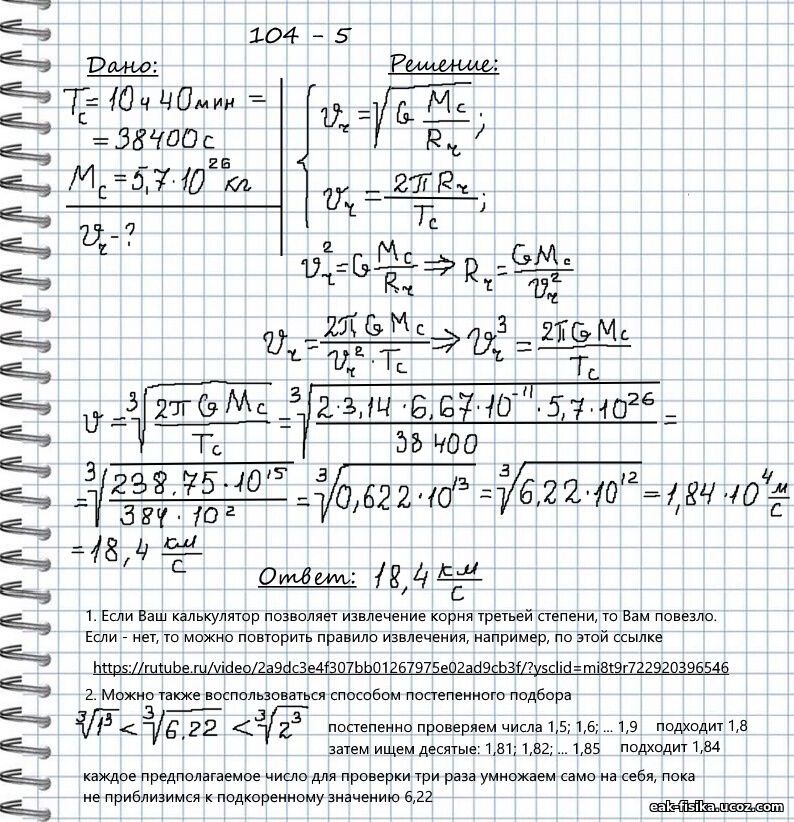 104 - 5
Дано:
Tс = 10 ч 40 мин =
= 38400 с
Mс = 5,7·10²⁶ кг
vч - ?
Решение:
vч = √(G Mс/Rч);
vч = 2π Rч/Tс;
vч² = G Mс/Rч ⇒ Rч = GMс/vч²
vч = 2π G Mс/(vч² · Tс) ⇒ vч³ = 2π G Mс/Tс
v = ³√(2π G Mс/Tс) = ³√(2·3,14·6,67·10⁻¹¹·5,7·10²⁶/38 400) =
= ³√(238,75·10¹⁵/384·10²) = ³√(0,622·10¹³) = ³√(6,22·10¹²) = 1,84·10⁴ м/с
= 18,4 км/с
Ответ: 18,4 км/с
1. Если Ваш калькулятор позволяет извлечение корня третьей степени, то Вам повезло.
Если - нет, то можно повторить правило извлечения, например, по этой ссылке
https://rutube.ru/video/2a9dc3e4f307bb01267975e02ad9cb3f/?ysclid=mi8t9r722920396546
2. Можно также воспользоваться способом постепенного подбора
³√1³ < ³√6,22 < ³√2³
постепенно проверяем числа 1,5; 1,6; ... 1,9 подходит 1,8
затем ищем десятые: 1,81; 1,82; ... 1,85 подходит 1,84
каждое предполагаемое число для проверки три раза умножаем само на себя, пока
не приблизимся к подкоренному значению 6,22
eak-fisika.ucoz.com